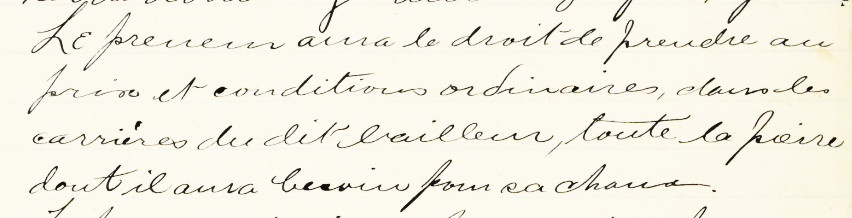 Le preneur aura le droit de prendre au
prix et conditions ordinaires, dans les
carrières du dit bailleur, toute la pierre
dont il aura besoin pour sa chaux.